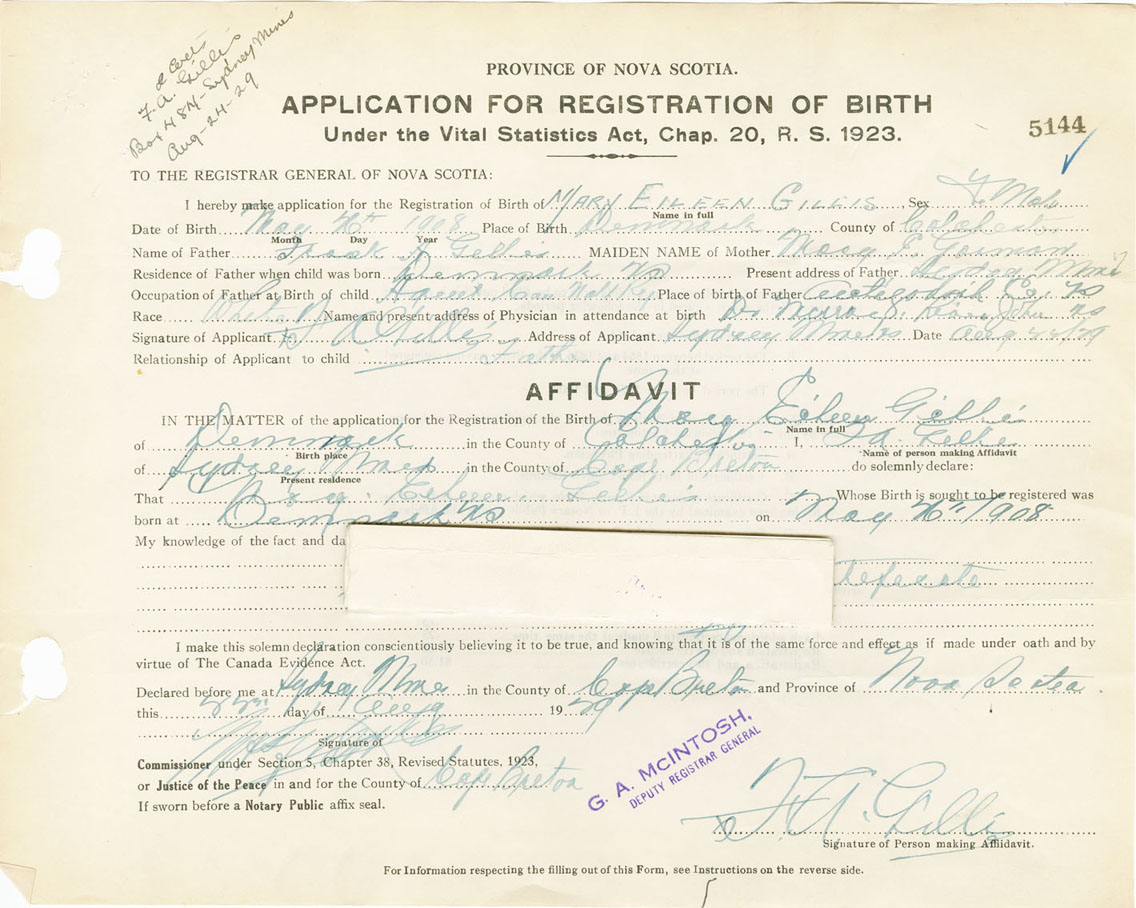 & Cert
F. A. Gillis
Box 484 - Sydney Mines
Aug - 24 - 29
PROVINCE OF NOVA SCOTIA.
APPLICATION FOR REGISTRATION OF BIRTH
Under the Vital Statistics Act, Chap. 20, R. S. 1923.
5144
TO THE REGISTRAR GENERAL OF NOVA SCOTIA:
I hereby make application for the Registration of Birth of MARY EILEEN GILLIS Sex
Name in full
Date of Birth May 1908 Place of Birth Denmark County of Colchester
Month Day Year
Name of Father Frank A Gillis MAIDEN NAME of Mother Mary E. Gorman
Residence of Father when child was born Denmark NS Present address of Father Sydney Mines
Occupation of Father at Birth of child Agent Place of birth of Father Antigonish Co. NS
Race White Name and present address of Physician in attendance at birth Dr Munroe NS
Signature of Applicant F A Gillis Address of Applicant Sydney Mines Date Aug 29
Relationship of Applicant to child Father
AFFIDAVIT
IN THE MATTER of the application for the Registration of the Birth of Mary Eileen Gillis
Name in full
of Denmark in the County of Colchester I, F A Gillis
Birth place Name of person making Affidavit
of Sydney Mines in the County of Cape Breton do solemnly declare:
Present residence
That Mary Eileen Gillis Whose Birth is sought to be registered was
born at Denmark NS on May 1908
My knowledge of the fact and da
I make this solemn declaration conscientiously believing it to be true, and knowing that it is of the same force and effect as if made under oath and by
virtue of The Canada Evidence Act.
Declared before me at Sydney Mines in the County of Cape Breton and Province of Nova Scotia.
this day of Aug 1929
Signature of
Commissioner under Section 5, Chapter 38, Revised Statutes, 1923,
or Justice of the Peace in and for the County of Cape Breton
If sworn before a Notary Public affix seal.
G. A. MCINTOSH,
DEPUTY REGISTRAR GENERAL
F. A. Gillis
Signature of Person making Affidavit.
For Information respecting the filling out of this Form, see Instructions on the reverse side.